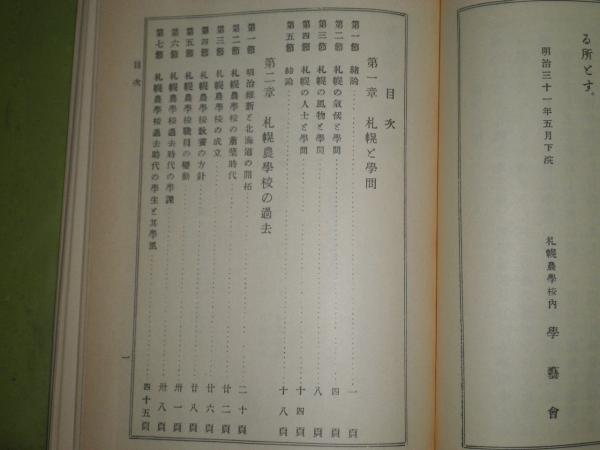 る所とす。
明治三十一年五月下浣
札幌農學校內 學藝會
目次
第一章 札幌と學問
第一節 緒論 一頁
第二節 札幌の氣候と學問 四頁
第三節 札幌の風物と學問 八頁
第四節 札幌の人士と學問 十四頁
第五節 結論 十八頁
第二章 札幌農學校の過去
第一節 明治維新と北海道の開拓 二十頁
第二節 札幌農學校の萠芽時代 廿二頁
第三節 札幌農學校の成立 廿六頁
第四節 札幌農學校敎育の方針 廿八頁
第五節 札幌農學校職員の變動 卅一頁
第六節 札幌農學校過去時代の學課 卅八頁
第七節 札幌農學校過去時代の學生と其學風 四十五頁
目次
一